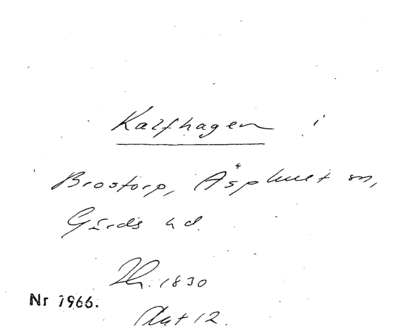 Kalfhagen i
Brostorp, Äsphult sn,
Gärds hd.
1830
Nr 1966.
Akt 12.